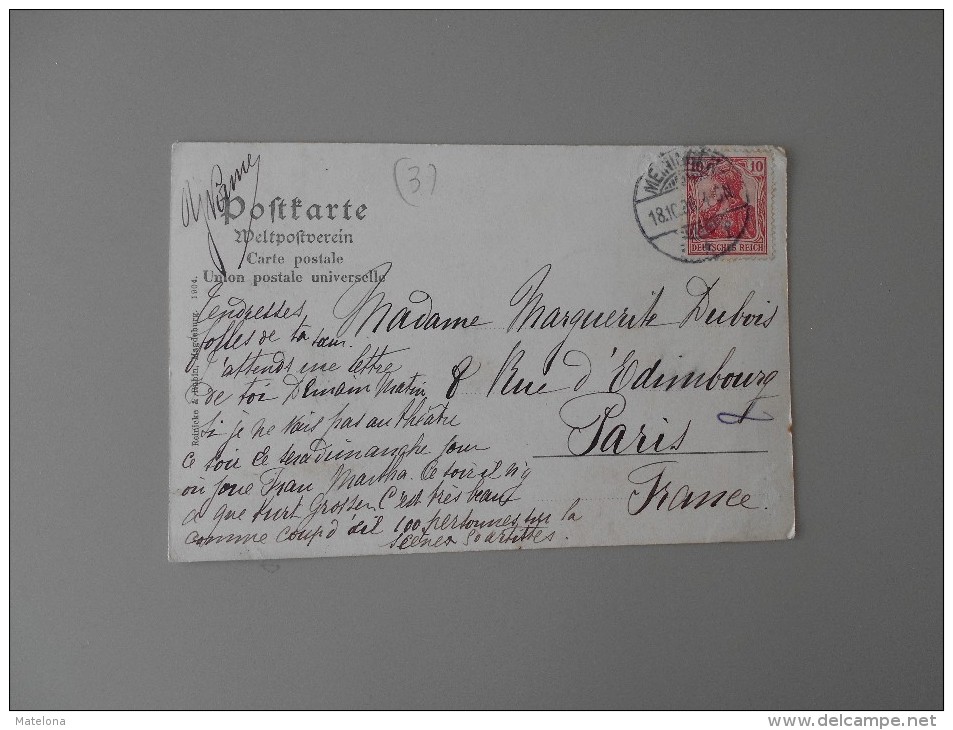 (3)
Postkarte
Weltpostverein
Carte postale
Union postale universelle
10
DEUTSCHES REICH
18.10.
Reinicke & Rubin, Magdeburg. 1904.
Madame Marguerite Dubois
8 Rue d'Edimbourg
Paris
France.
Tendresses
folles de ta sœur.
J'attends une lettre
de toi Demain Matin
Si je ne vais pas au théâtre
ce soir ce sera dimanche jour
où joue Frau Martha. Ce soir il n'y
a que Kurt Grosser. C'est très beau
comme coup d'œil 100 personnes sur la
scène artistes.
Matelona
delcampe.net